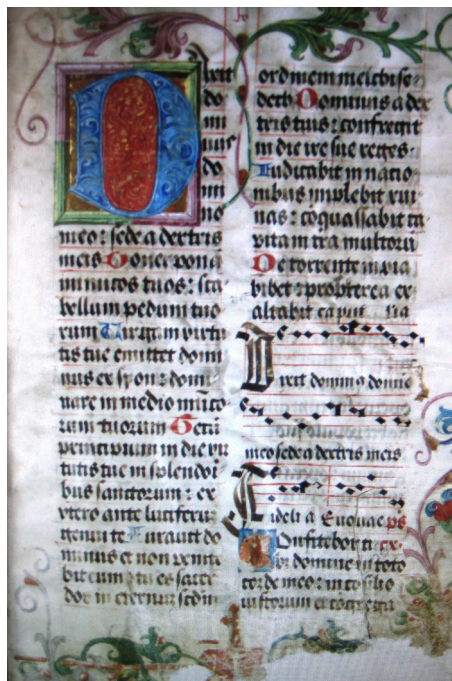 Dixit
do
mi
nus
do
mi
no
meo : sede a dextris
meis Donec pona
inimicos tuos : sca
bellum pedum tuo
rum Uirgam virtu
tis tue emittet domi
nus ex syon : domi
nare in medio inĩco
rum tuorum Tecũ
principium in die vir
tutis tue in splendori
bus sanctorum : ex
vtero ante luciferũ
genui te Iurauit do
minus et non penite
bit eum : tu es sacer
dos in eternũ scdm
ordinem melchise
dech Dominus a dex
tris tuis : confregit
in die ire sue reges
Iudicabit in natio
nibus implebit rui
nas : cõquassabit ca
pita in tra multorũ
De torrente in via
bibet : propterea ex
altabit caput
Dixit dominꝰ domino
meo sede a dextris meis
Fideli a Euouae ps
Confitebor ti
bi domine in toto
corde meo : in cõsilio
iustorum et cõgrega